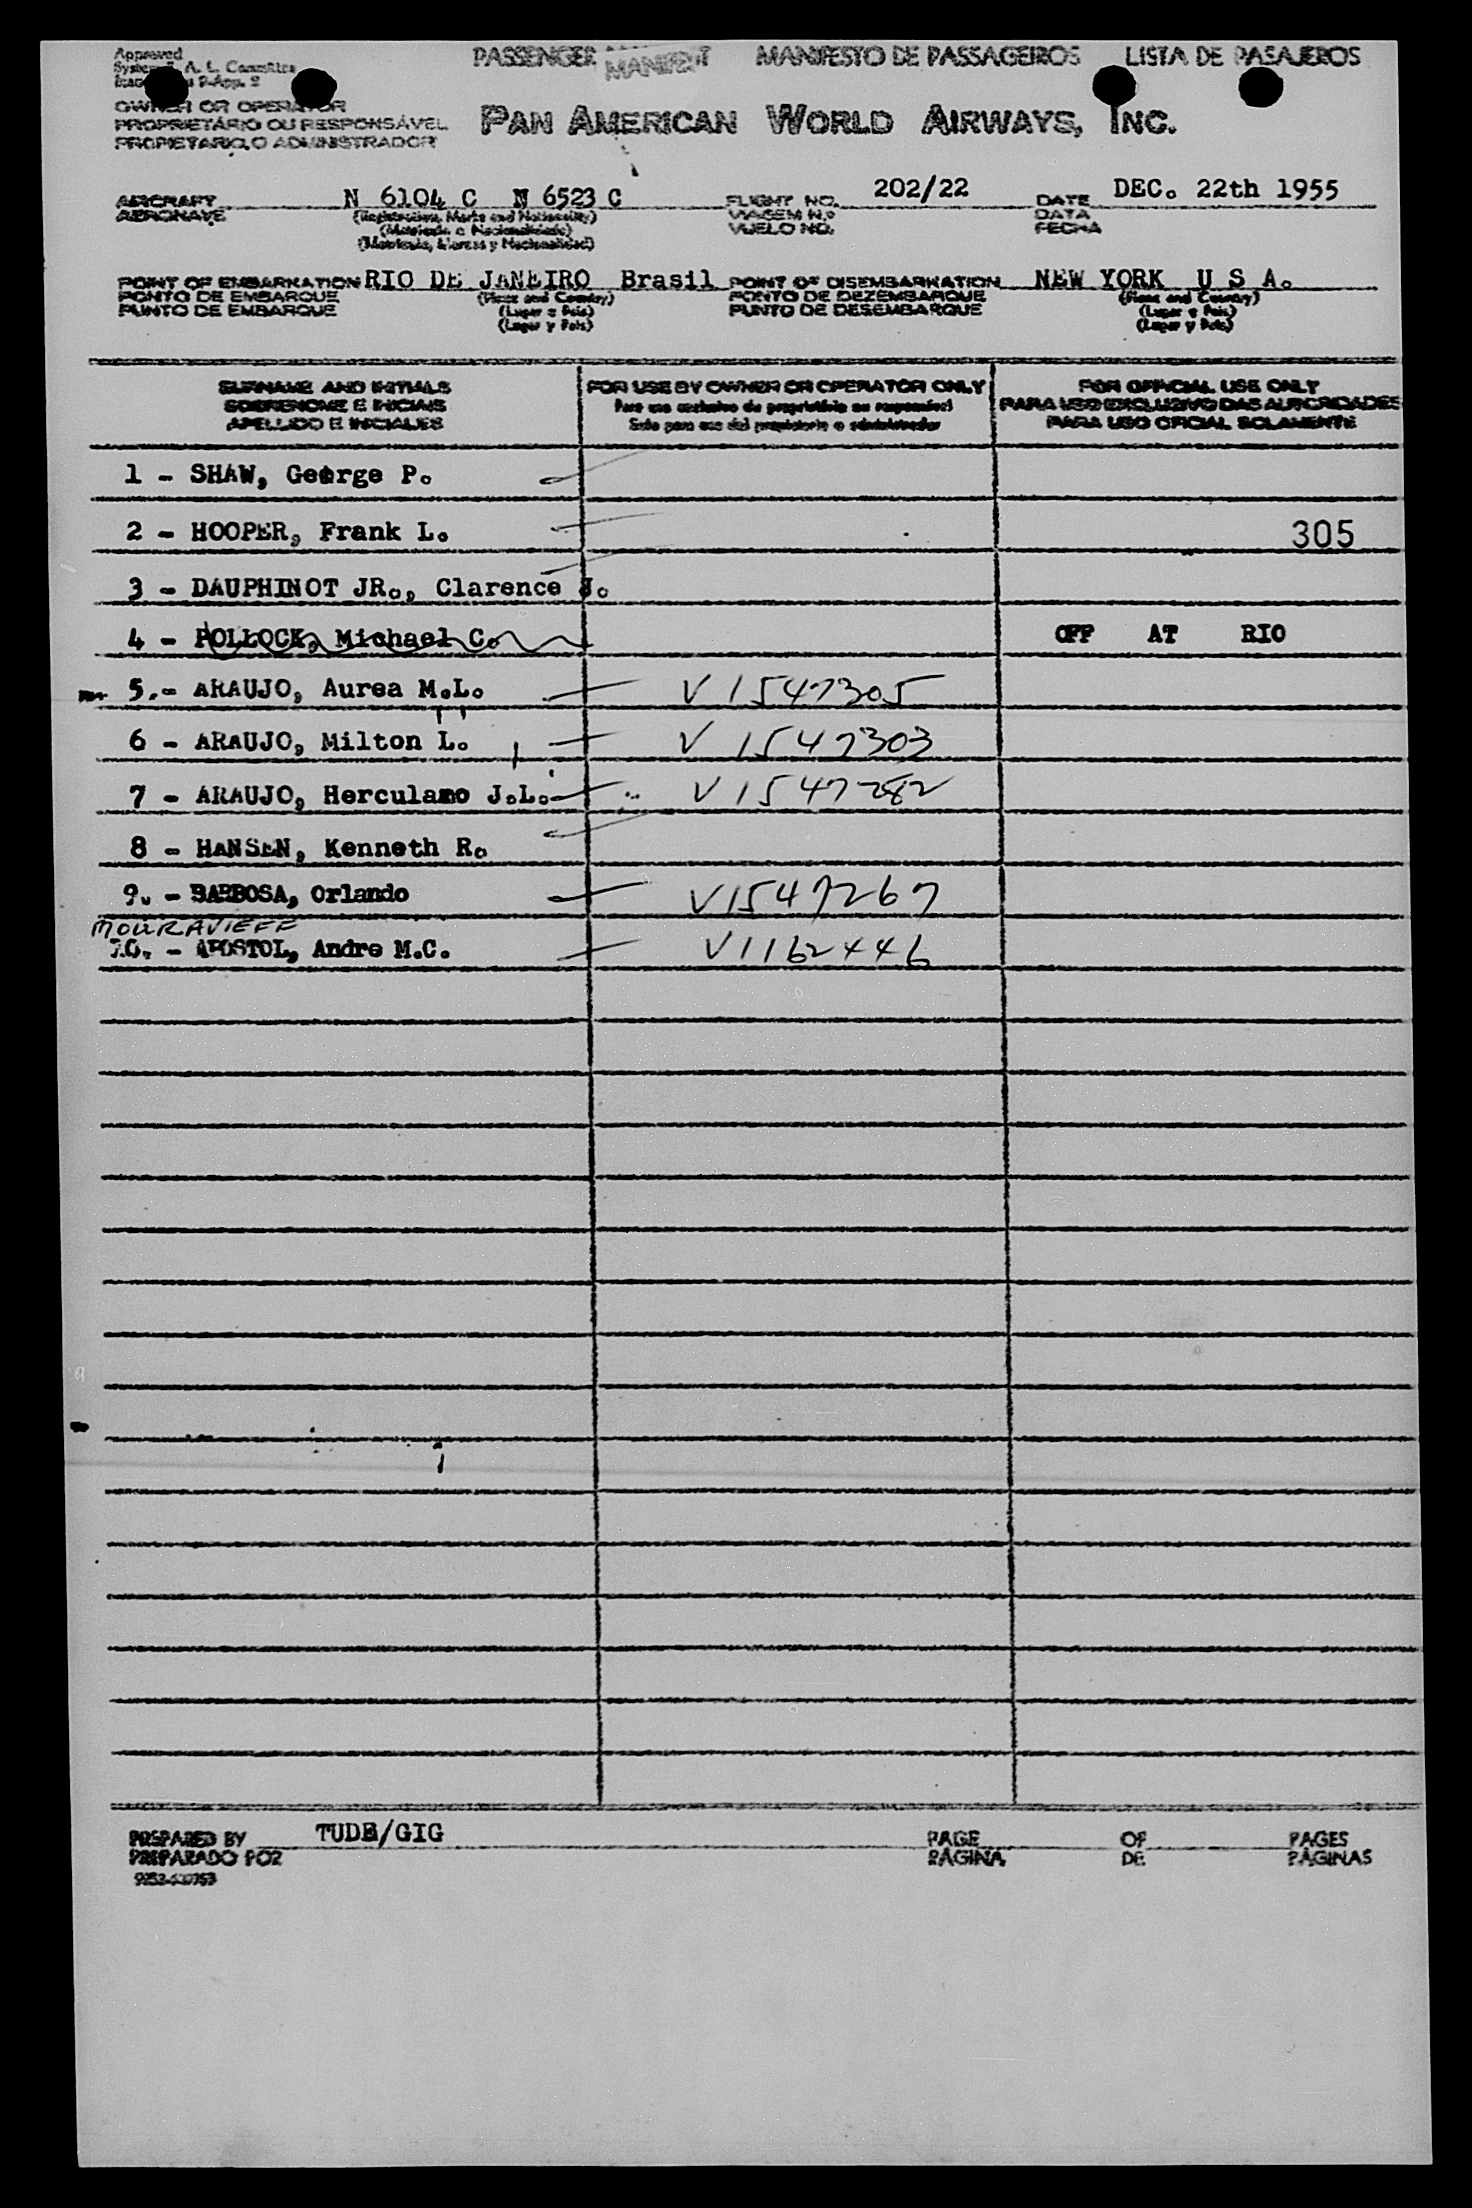 Approved
PASSENGER MANIFEST MANIFESTO DE PASSAGEIROS LISTA DE PASAJEROS
OWNER OR OPERATOR
PROPRIETÁRIO OU RESPONSÁVEL
PROPIETARIO, O ADMINISTRADOR
PAN AMERICAN WORLD AIRWAYS, INC.
AIRCRAFT N 6104 C N 6523 C FLIGHT NO. 202/22 DATE DEC. 22th 1955
AERONAVE (Registration, Marks and Nationality) VIAGEM N.º DATA
(Matricula e Nacionalidade) VUELO NO. FECHA
(Matricula, Marcas y Nacionalidad)
POINT OF EMBARKATION RIO DE JANEIRO Brasil POINT OF DISEMBARKATION NEW YORK U S A.
PONTO DE EMBARQUE (Place and Country) PONTO DE DEZEMBARQUE (Place and Country)
PUNTO DE EMBARQUE (Lugar e Pais) PUNTO DE DESEMBARQUE (Lugar e Pais)
(Lugar y Pais) (Lugar y Pais)
SURNAME AND INITIALS FOR USE BY OWNER OR OPERATOR ONLY FOR OFFICIAL USE ONLY
SOBRENOME E INICIAIS Para uso exclusivo do proprietário ou responsável PARA USO EXCLUZIVO DAS AUTORIDADES
APELLIDO E INICIALES Solo para uso del propietario o administrador PARA USO OFICIAL SOLAMENTE
1 - SHAW, George P.
2 - HOOPER, Frank L. 305
3 - DAUPHINOT JR., Clarence J.
4 - POLLOCK, Michael C. OFF AT RIO
5.- ARAUJO, Aurea M.L. V 1547305
6 - ARAUJO, Milton L. V 1547303
7 - ARAUJO, Herculano J.L. V 1547282
8 - HANSEN, Kenneth R.
9. - BARBOSA, Orlando V1547267
MOURAVIEFF
10. - APOSTOL, Andre M.C. V1162446
PREPARED BY TUDE/GIG PAGE OF PAGES
PREPARADO POR PÁGINA DE PÁGINAS